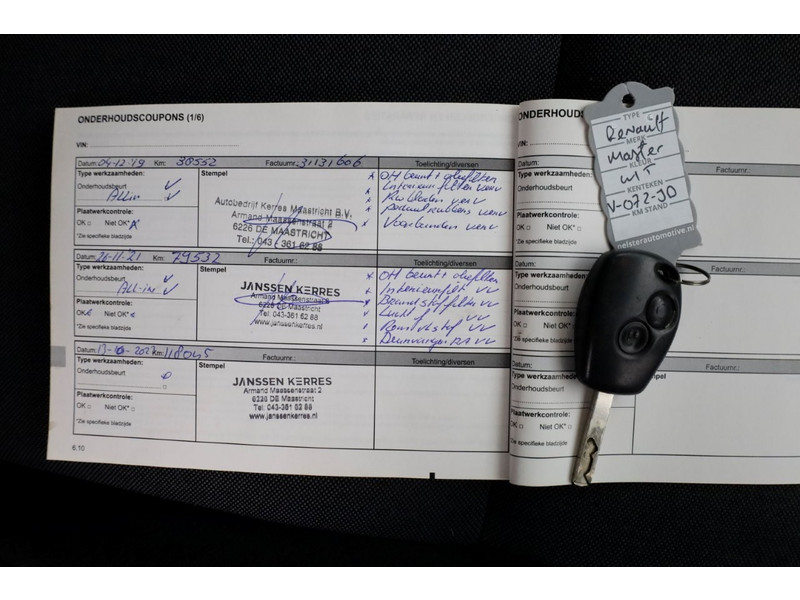 ONDERHOUDSCOUPONS (1/6)
VIN:
Datum: 04-12-19 Km: 38552 Factuurnr.: 3131606
Type werkzaamheden:
Stempel
Toelichting/diversen
Onderhoudsbeurt
All-in
Plaatwerkcontrole:
OK □ Niet OK*
*Zie specifieke bladzijde
Autobedrijf Kerres Maastricht B.V.
Armand Maassenstraat 2
6226 DE MAASTRICHT
Tel.: 043 - 361 52 88
OH beurt + oliefilter
Interieurfilter verv
Ruitwissers verv
verv
Voorbanden verv
Datum: -11-21 Km: 79532 Factuurnr.:
Type werkzaamheden:
Stempel
Toelichting/diversen
Onderhoudsbeurt
All-in
Plaatwerkcontrole:
OK Niet OK*
*Zie specifieke bladzijde
JANSSEN KERRES
Armand Maassenstraat 2
6226 DE Maastricht
Tel: 043-361 52 88
www.janssenkerres.nl
OH beurt + oliefilter
Interieurfilt VV
Brandstoffilter VV
Lucht f VV
Remvlstof VV
VV
Datum: 13-10-2023 Km: 118045 Factuurnr.:
Type werkzaamheden:
Stempel
Toelichting/diversen
Onderhoudsbeurt
Plaatwerkcontrole:
OK □ Niet OK* □
*Zie specifieke bladzijde
JANSSEN KERRES
Armand Maassenstraat 2
6226 DE Maastricht
Tel: 043-361 52 88
www.janssenkerres.nl
6.10
ONDERHOUDSC
VIN:
Datum:
Type werkzaamheden:
Onderhoudsbeurt
Plaatwerkcontrole:
OK □ Niet OK*
*Zie specifieke bladzijde
Datum:
Type werkzaamheden:
Onderhoudsbeurt
Plaatwerkcontrole:
OK □ Niet OK*
*Zie specifieke bladzijde
Datum:
Type werkzaamheden:
Onderhoudsbeurt
Plaatwerkcontrole:
OK □ Niet OK* □
*Zie specifieke bladzijde
TYPE
Renault
MERK
Master
KLEUR
WIT
KENTEKEN
V-072-JD
KM STAND
nelsterautomotive.nl